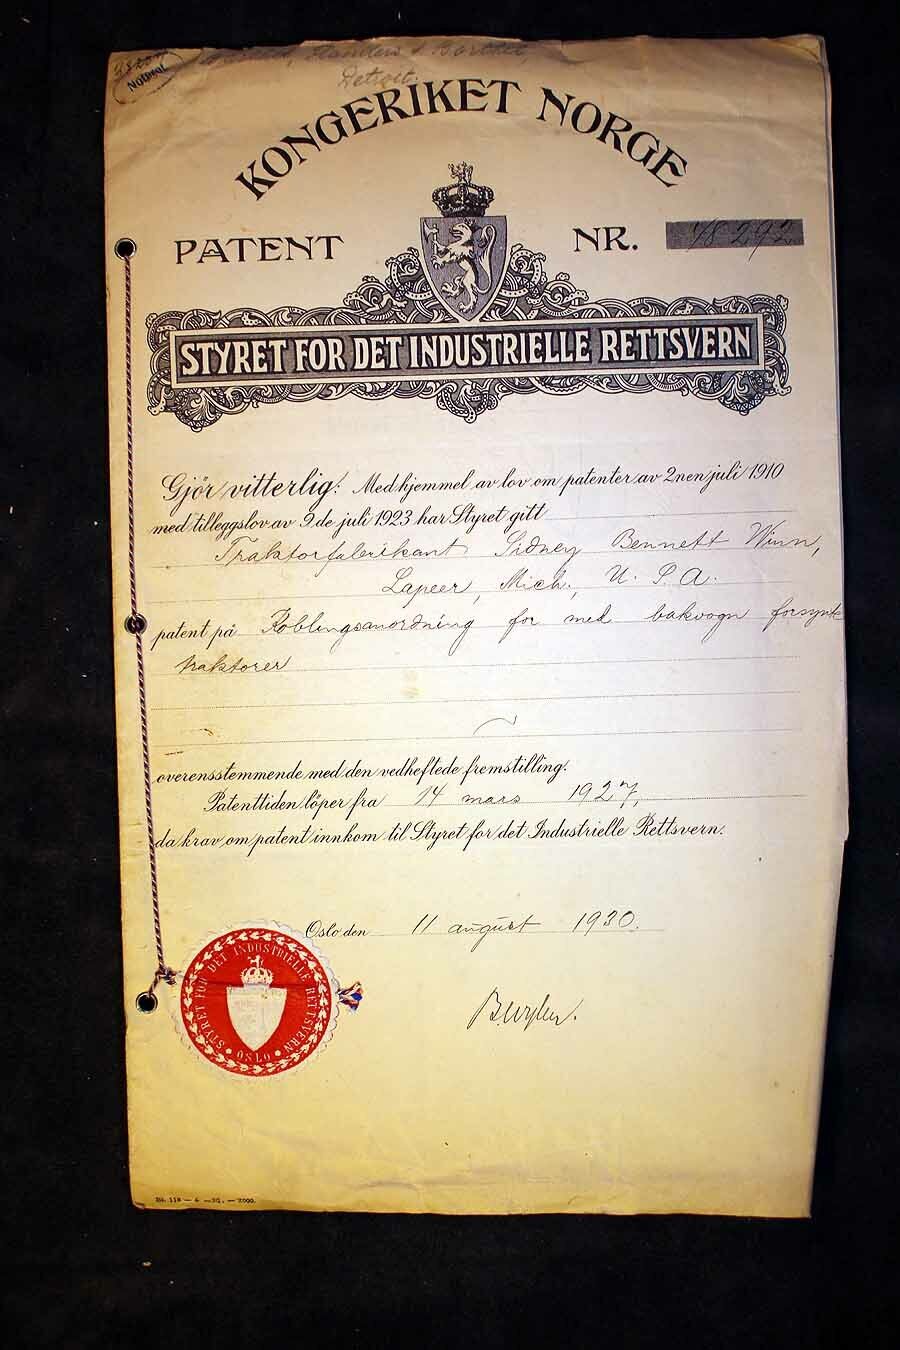 Detroit.
KONGERIKET NORGE
PATENT NR. 48292
STYRET FOR DET INDUSTRIELLE RETTSVERN
Gjör vitterlig: Med hjemmel av lov om patenter av 2nen juli 1910
med tilleggslov av 9de juli 1923 har Styret gitt
Traktorfabrikant Sidney Bennett Winn,
Lapeer, Mich., U. S. A.
patent på Koblingsanordning for med bakvogn forsynte
traktorer
overensstemmende med den vedheftede fremstilling.
Patenttiden löper fra 14 mars 1927,
da krav om patent innkom til Styret for det Industrielle Rettsvern.
Oslo den 11 august 1930.
STYRET FOR DET INDUSTRIELLE RETTSVERN
OSLO